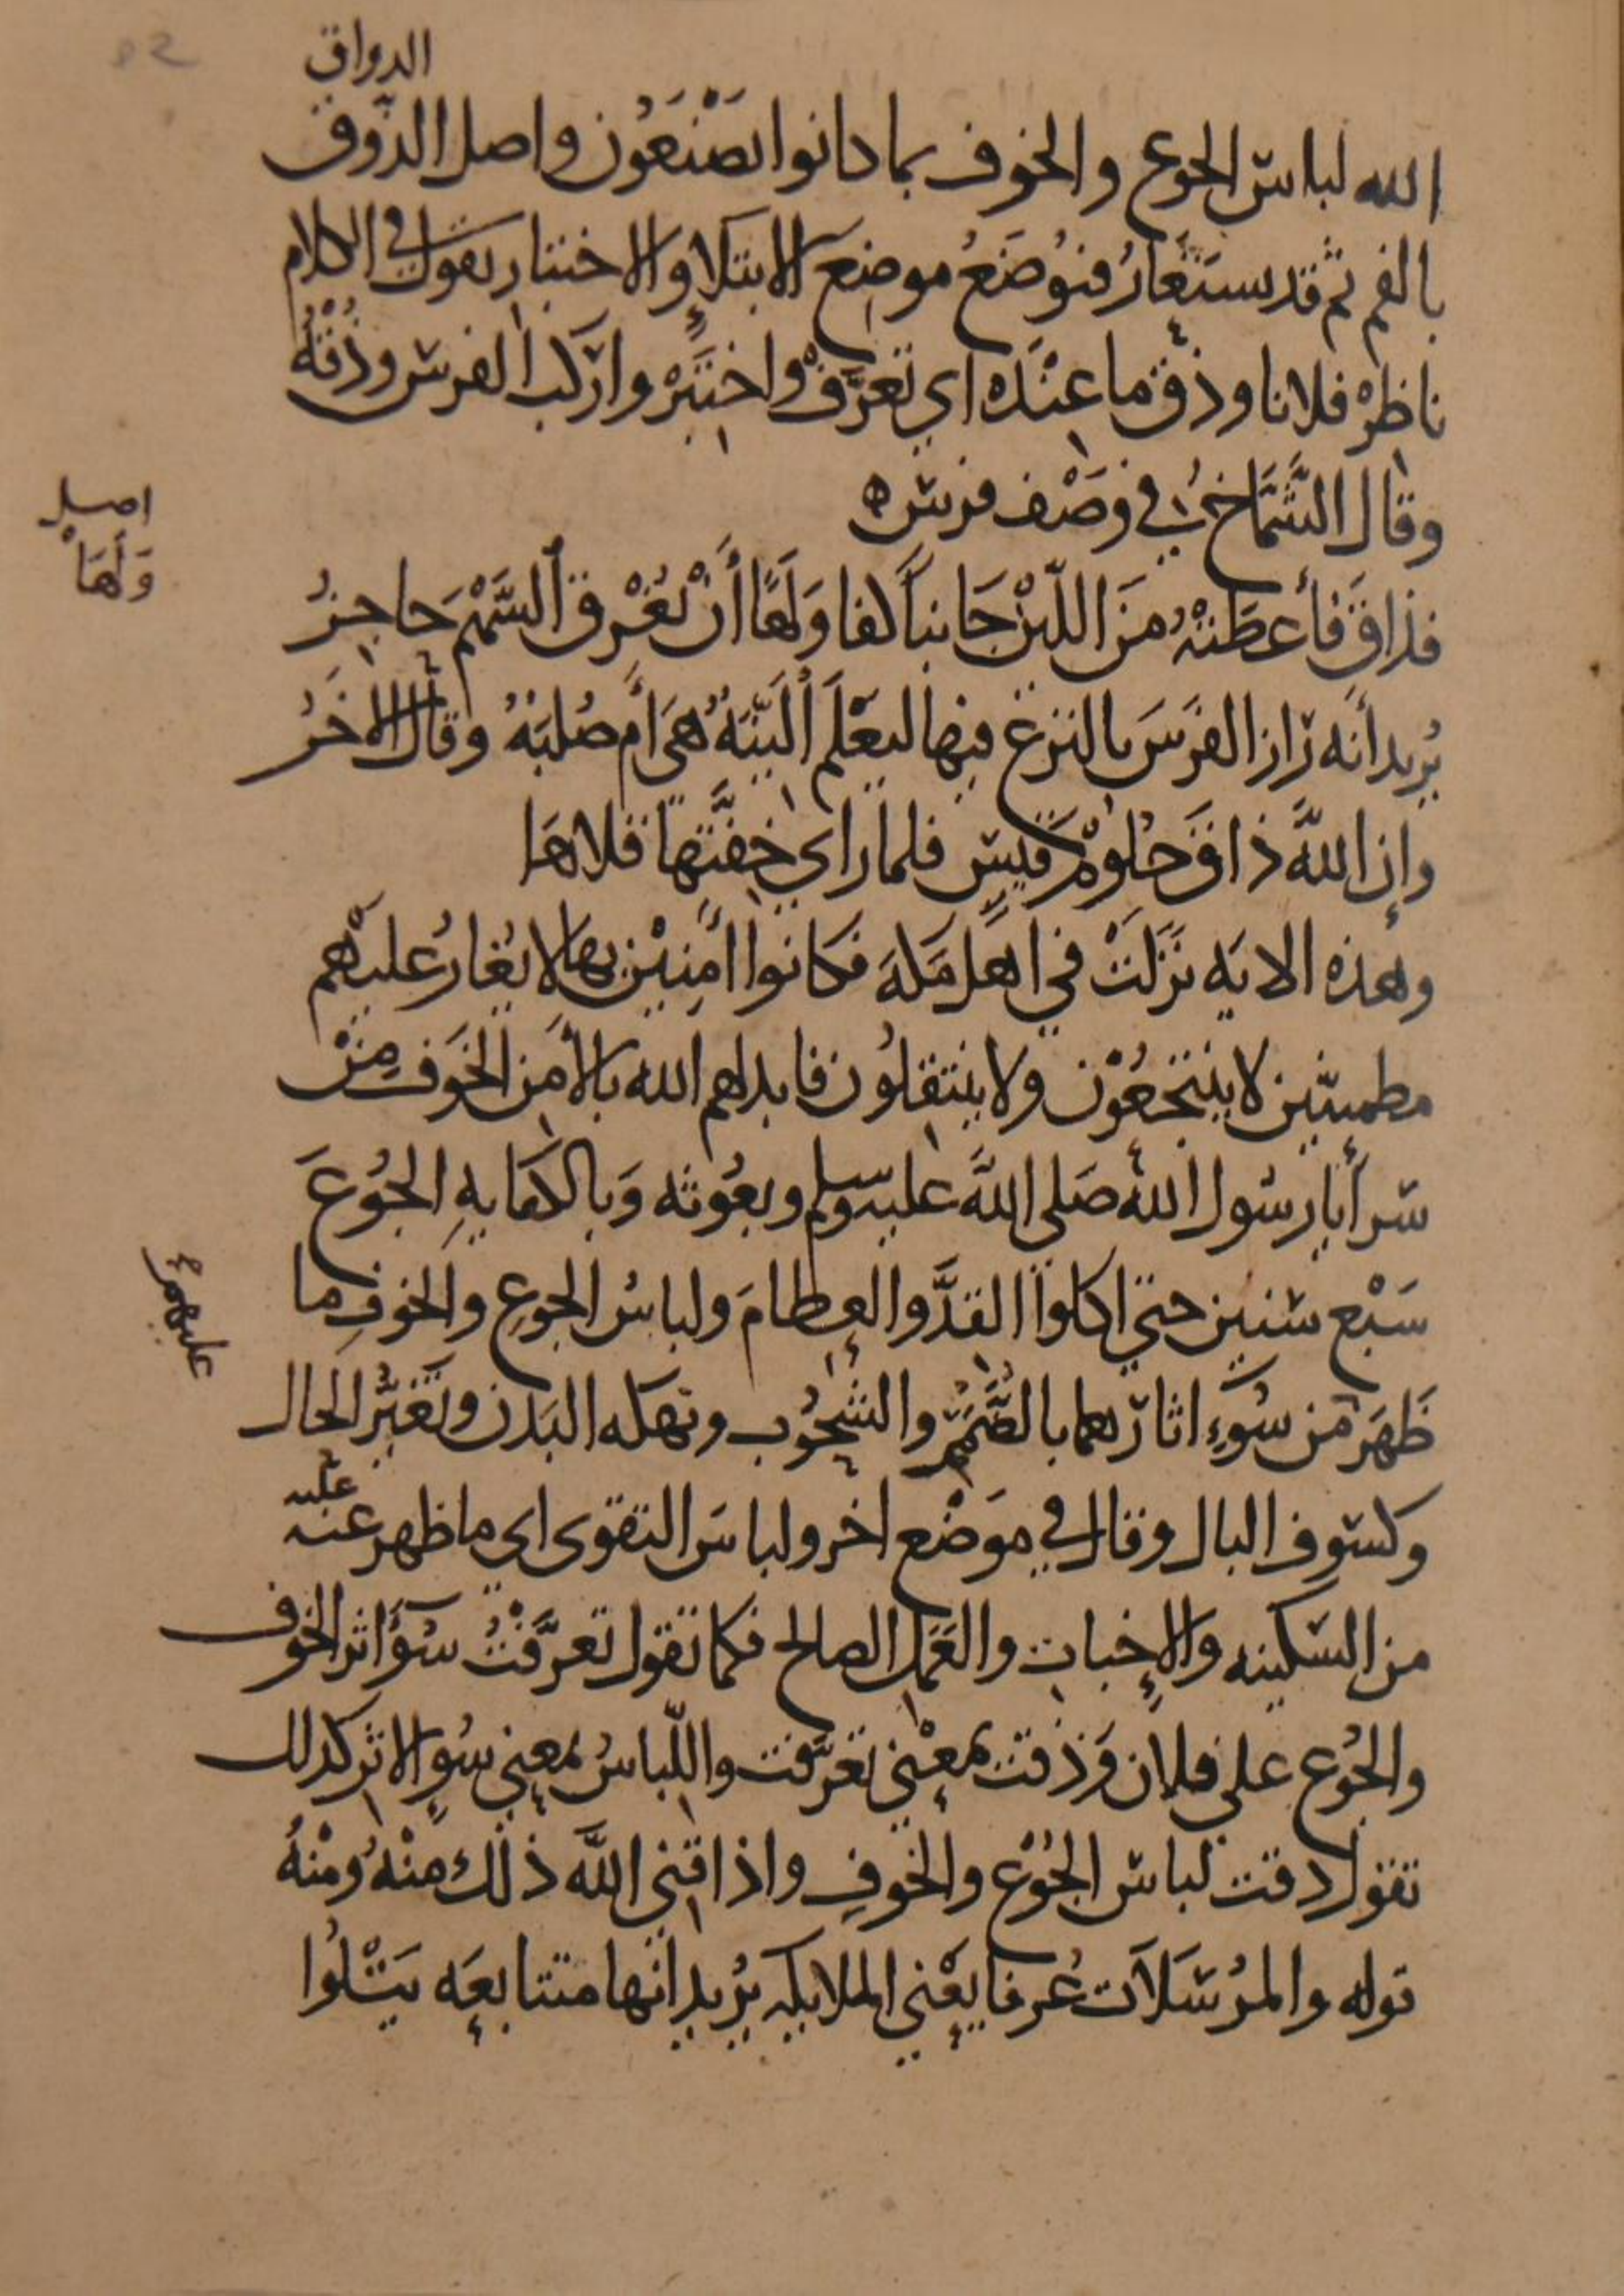 الذواق
الله لباس الجوع والخوف بما كانوا يصنعون واصل الذوق
بالفم ثم قد يستعار فيوضع موضع الابتلاء والاختبار يقول في الكلام
ناظر فلانا وذق ما عنده اي تعرف واختبر واركب الفرس وذقه
وقال الشماخ في وصف فرس ه
اصل
ولها
فذاق فأعطته من اللين جانبا كفا ولها أن يغرق السهم حاجز
يريد أنه راز الفرس بالنزع فيها ليعلم ألينة هي أم صلبة وقال الآخر
وإن الله ذاق حلوم قيس فلما راى خفتها قلاها
وهذه الايه نزلت في اهل مكة فكانوا آمنين بها لا يغار عليهم
مطمينين لا ينتجعون ولا ينتقلون فابدلهم الله بالأمن الخوف من
سرايا رسول الله صلى الله عليه وسلم وبعوثه وبالكفايه الجوع
سبع سنين حتى اكلوا القد والعظام ولباس الجوع والخوف ما
عليهم
ظهر من سوء اثارهما بالضمر والشحوب ونهكه البدن وتغير الحال
وكسوف البال وقال في موضع اخر ولباس التقوى اي ما ظهر عنه
عليه
من السكينه والإخبات والعمل الصالح فكما تقول تعرفت سوء اثر الخوف
والجوع على فلان وذقت بمعنى تعرفت واللباس بمعنى سوء الاثر كذلك
تقول ذقت لباس الجوع والخوف واذاقني الله ذلك منه ومنه
قوله والمرسلات عرفا يعني الملايكه يريد انها متتابعه يتلوا